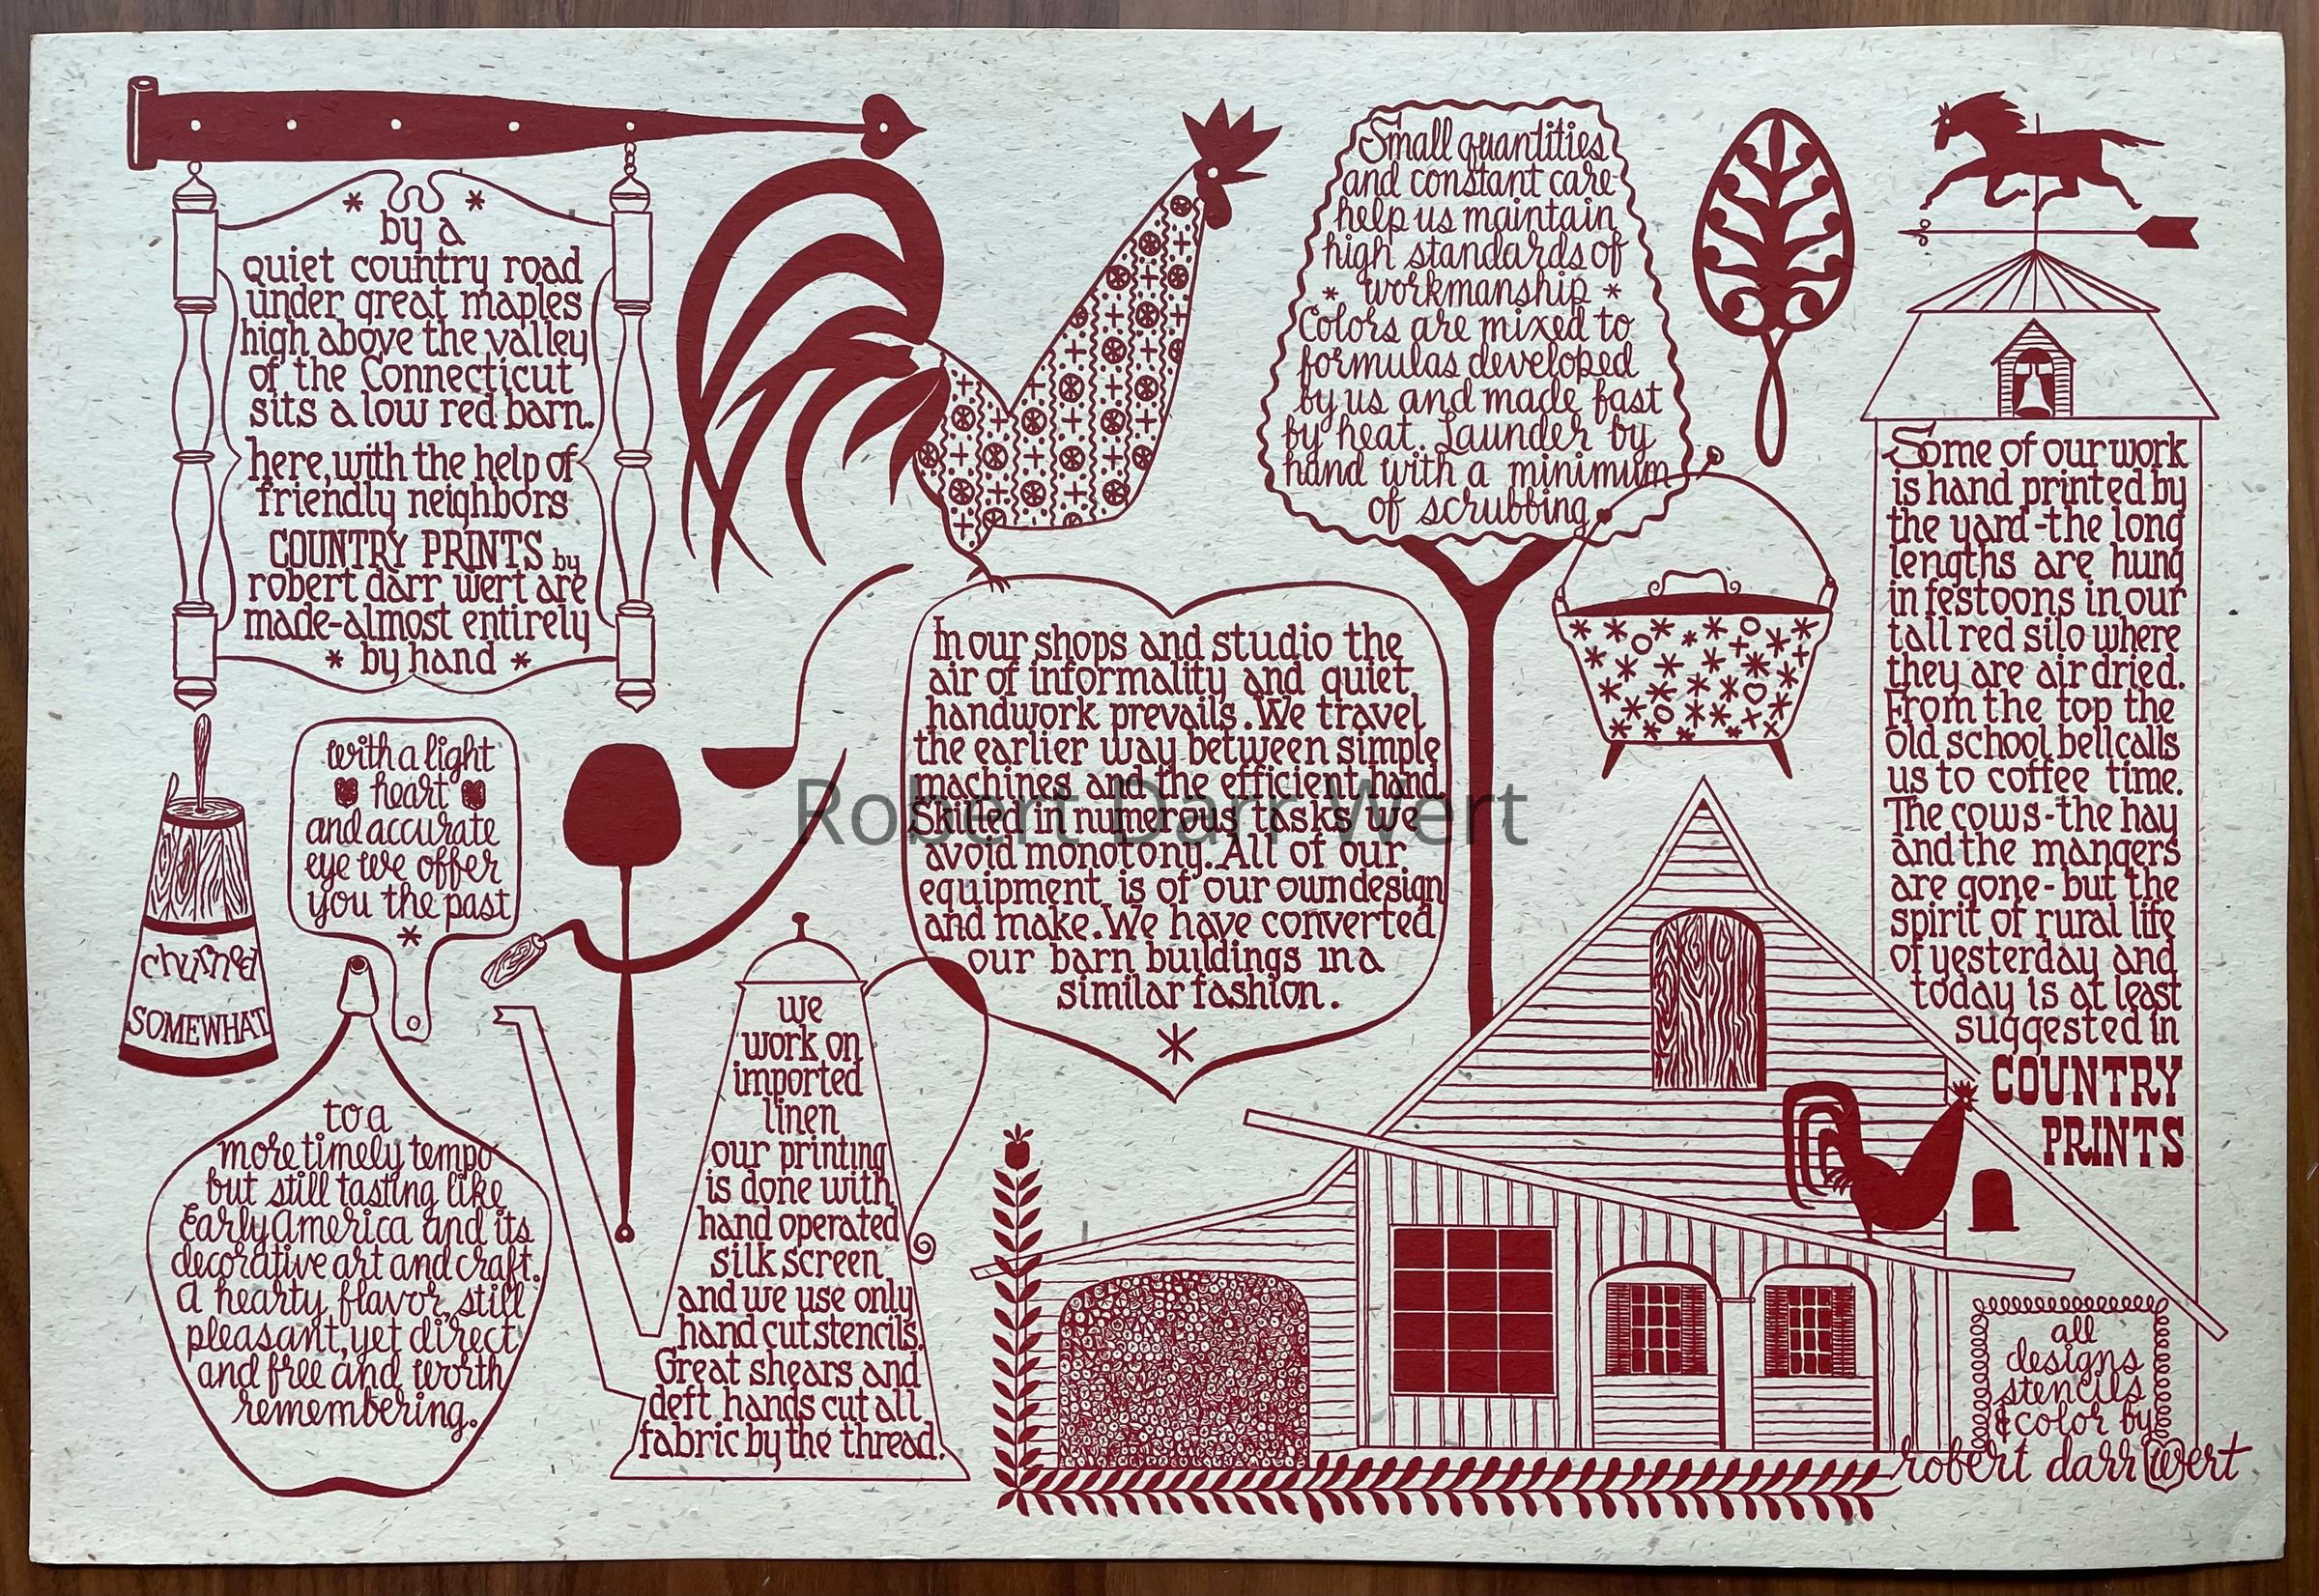 by a
quiet country road
under great maples
high above the valley
of the Connecticut
sits a low red barn.
here, with the help of
friendly neighbors
COUNTRY PRINTS by
robert darr wert are
made-almost entirely
* by hand *
with a light
heart
and accurate
eye we offer
you the past
*
churned
SOMEWHAT
to a
more timely tempo
but still tasting like
Early America and its
decorative art and craft.
A hearty flavor, still
pleasant, yet direct
and free and worth
remembering.
we
work on
imported
linen
our printing
is done with
hand operated
silk screen
and we use only
hand cut stencils.
Great shears and
deft hands cut all
fabric by the thread.
In our shops and studio the
air of informality and quiet
handwork prevails. We travel
the earlier way between simple
machines and the efficient hand.
Skilled in numerous tasks we
avoid monotony. All of our
equipment is of our own design
and make. We have converted
our barn buildings in a
similar fashion.
*
Small quantities
and constant care
help us maintain
high standards of
* workmanship *
Colors are mixed to
formulas developed
by us and made fast
by heat. Launder by
hand with a minimum
of scrubbing
Some of our work
is hand printed by
the yard-the long
lengths are hung
in festoons in our
tall red silo where
they are air dried.
From the top the
old school bell calls
us to coffee time.
The cows-the hay
and the mangers
are gone-but the
spirit of rural life
of yesterday and
today is at least
suggested in
COUNTRY
PRINTS
all
designs
stencils
& color by
robert darr wert
Robert Darr Wert